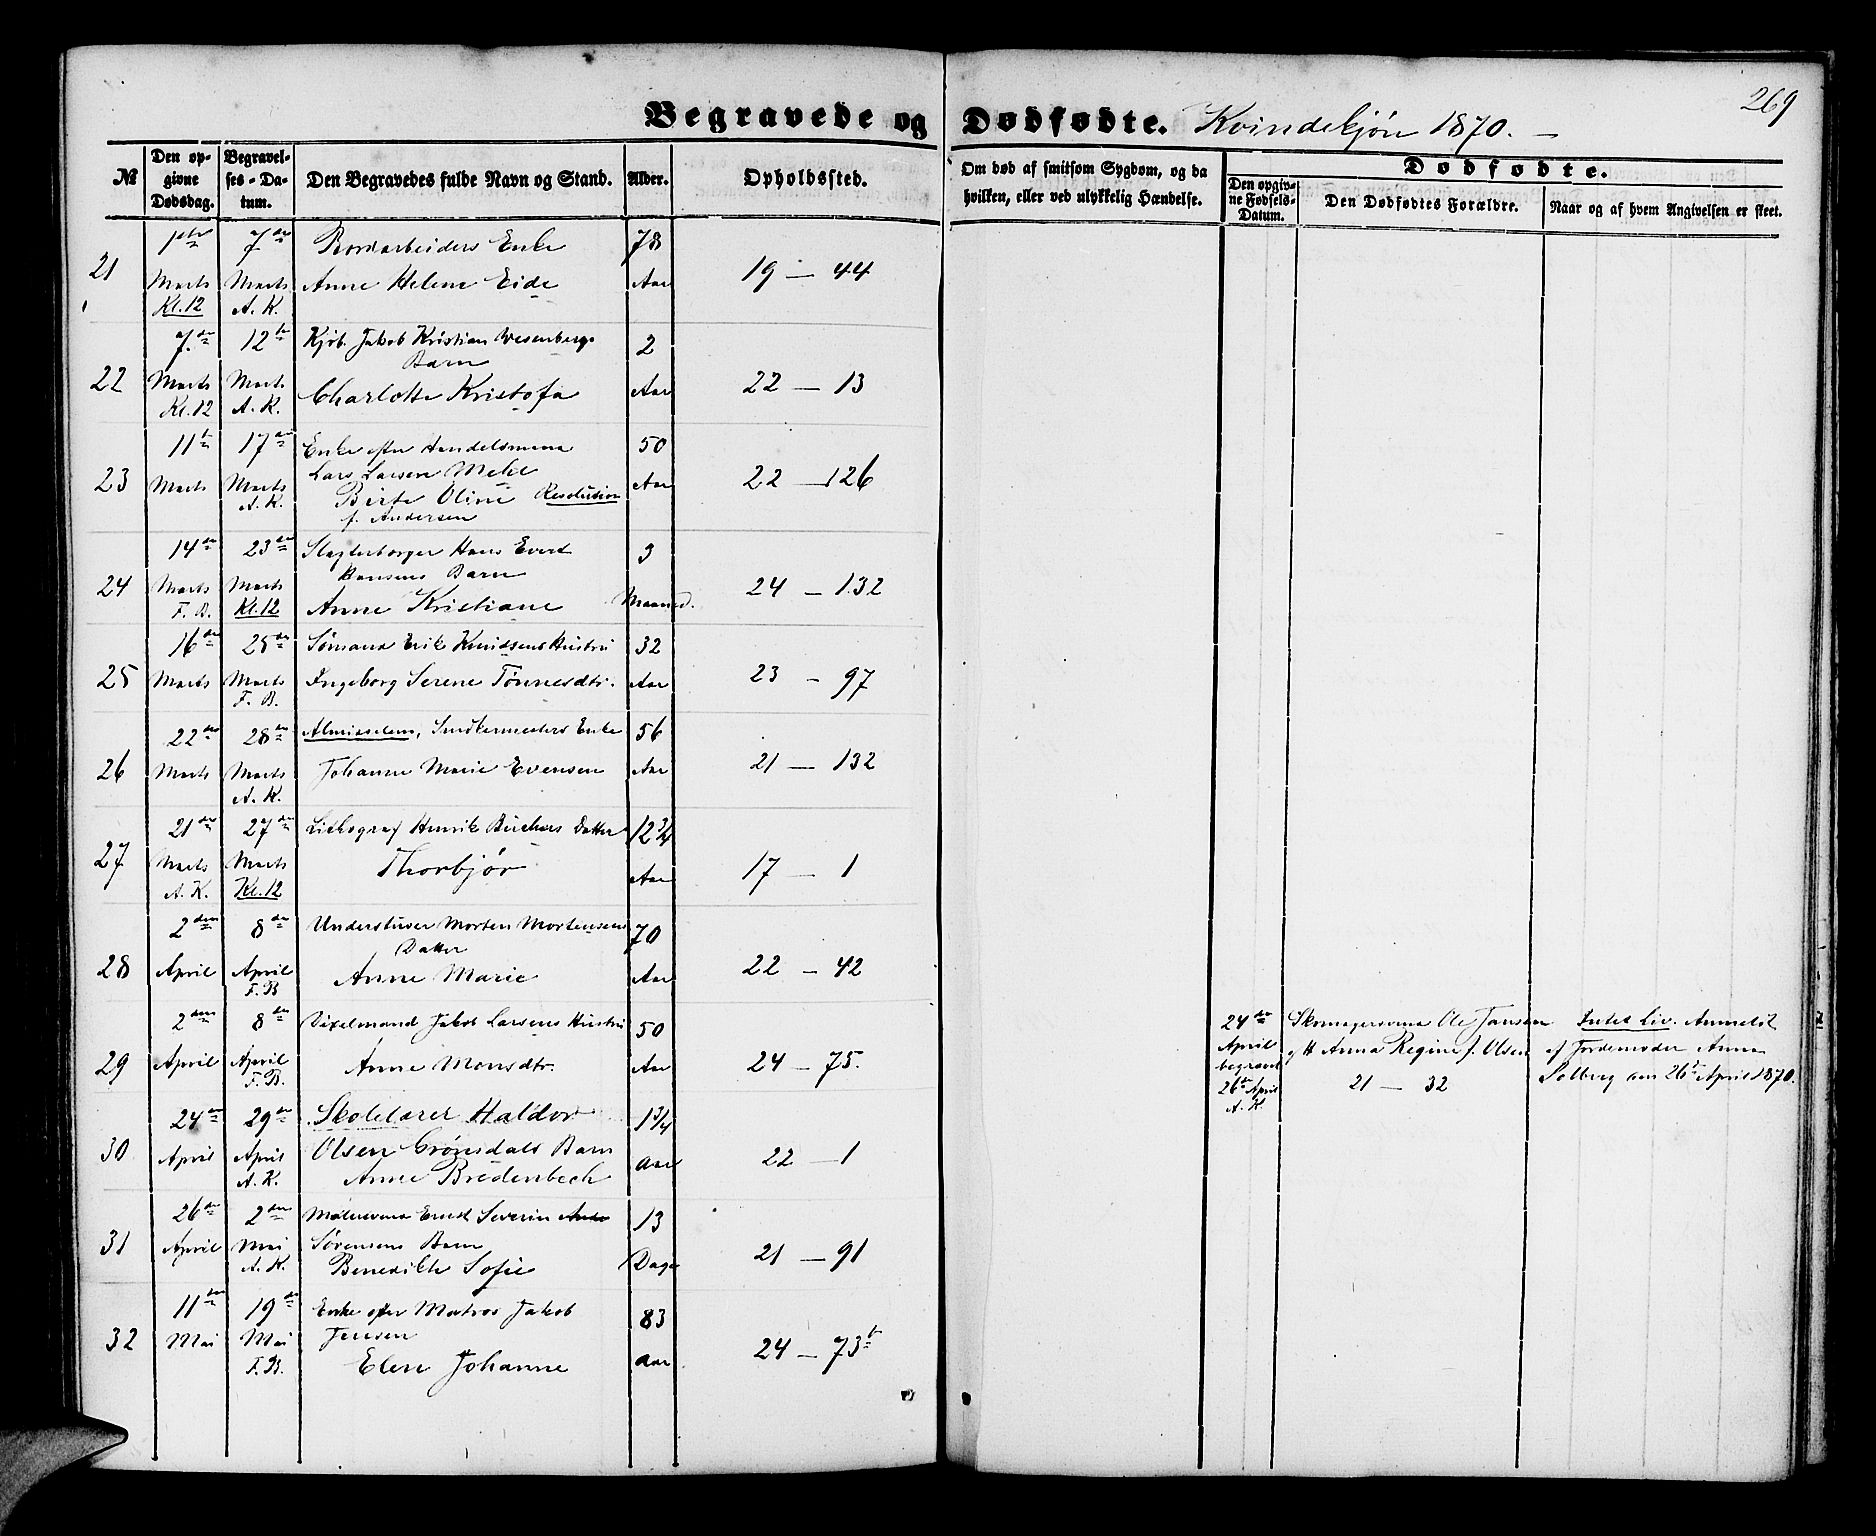 269
Begravede og Dødfødte. Kvindekjøn 1870. —
№ Den opgivne Dødsdag. Begravelses-Datum. Den Begravedes fulde Navn og Stand. Alder. Opholdssted. Om død af smitsom Sygdom, og da hvilken, eller ved ulykkelig Hændelse. Dødfødte.
Den opgivne Fødsels-Datum. Den Dødfødtes Forældre. Naar og af hvem Angivelsen er skeet.
7de Enke 78
21 Marts Marts Anne Helene Eide Aar 19 — 44
Kl. 12 A. K.
7de 12te Kjøb. Jakob Kristian Wesenbergs 2
Barn
22 Marts Marts Charlotte Kristofa Aar 22 — 13
Kl. 12 A. K.
11te 17de Enke efter Handelsmand 50
23 Marts Marts Lars Larsen Mehl Aar 22 — 126
A. K. Berte Oline Resolution
f. Andersen
14de 23de Slagterborger Hans Evert 3
Hansens Barn
24 Marts Marts Anne Kristiane Maaned. 24 — 132
F. B. Kl. 12
16de 25de Sømand Erik Knudsens Hustru 32
25 Marts Marts Ingeborg Serene Tønnesdtr. Aar 23 — 97
F. B.
22de 28de Almisselem, Enke 56
26 Marts Marts Johanne Marie Evensen Aar 21 — 132
A. K.
21de 27de Lithograf Henrik Datter 12 3/4
27 Marts Marts Thorbjør Aar 17 — 1
A. K. Kl. 12
2den 8de Morten Mortensens 70
Datter
28 April April Anne Marie Aar 22 — 42
F. B.
2den 8de Jakob Larsens Hustru 50
29 April April Anne Monsdtr. Aar 24 — 75.
F. B.
24de Skomagersvend Ole Jansen Intet Liv. Anmeldt
April og H Anna Regine f. Olsen af Jordemoder Anna
begravet 21 — 32 Solberg den 26de April 1870.
26de April
A. K.
24de 29de Skolelærer Haldor 1 3/4
30 April April Olsen Grønsdals Barn Aar 22 — 1
A. K. Anne Bredenbech
26de 2den Malersvend Ernst Severin 13
31 April Mai Sørensens Barn Dage 21 — 91
A. K. Benedikte Sofie
11te 19de Enke efter Matros Jakob 83
32 Mai Mai Jensen Aar 24 — 73
F. B. Elen Johanne